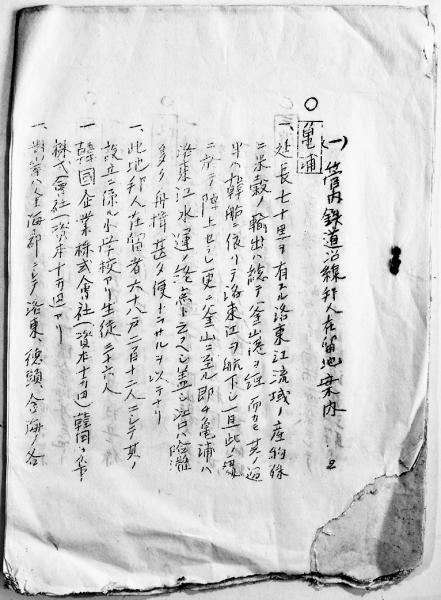 一、管内鉄道沿線邦人在留地案内
○龜浦
一、延長七十里ヲ有スル洛東江流域ノ産物殊
ニ米穀ノ輸出ハ総テ釜山港ヲ経而カモ其ノ過
半ハ韓船ニ依リテ洛東江ヲ航下シ一旦此ノ
ニ於テ陸上セシ更ニ釜山ニ至ル即チ龜浦ハ
洛東江水運ノ終点ト云フベシ蓋シ江口ハ險灘
多ク舟楫甚タ便ナラサルヲ以テナリ
一、此地邦人在留者六十八戸二百十二人ニシテ其ノ
設立ニ係ル小学校アリ生徒三十六人
一、韓國企業株式會社(資本十万円)韓国
株式會社(資本十五万円)アリ
一、金海郡ニシテ洛東 德頭 金海ノ各